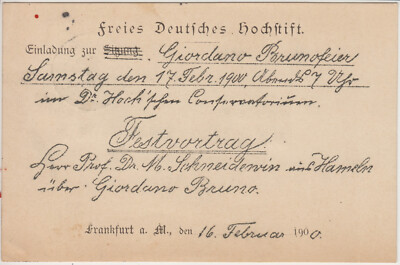 Freies Deutsches Hochstift.
Einladung zur Sitzung. Giordano Brunofeier
Samstag den 17. Febr. 1900, Abends 7 Uhr
im Dr. Hoch'schen Conservatorium.
Festvortrag
Herr Prof. Dr. M. Schneidewin aus Hameln
über Giordano Bruno.
Frankfurt a. M., den 16. Februar 1900.